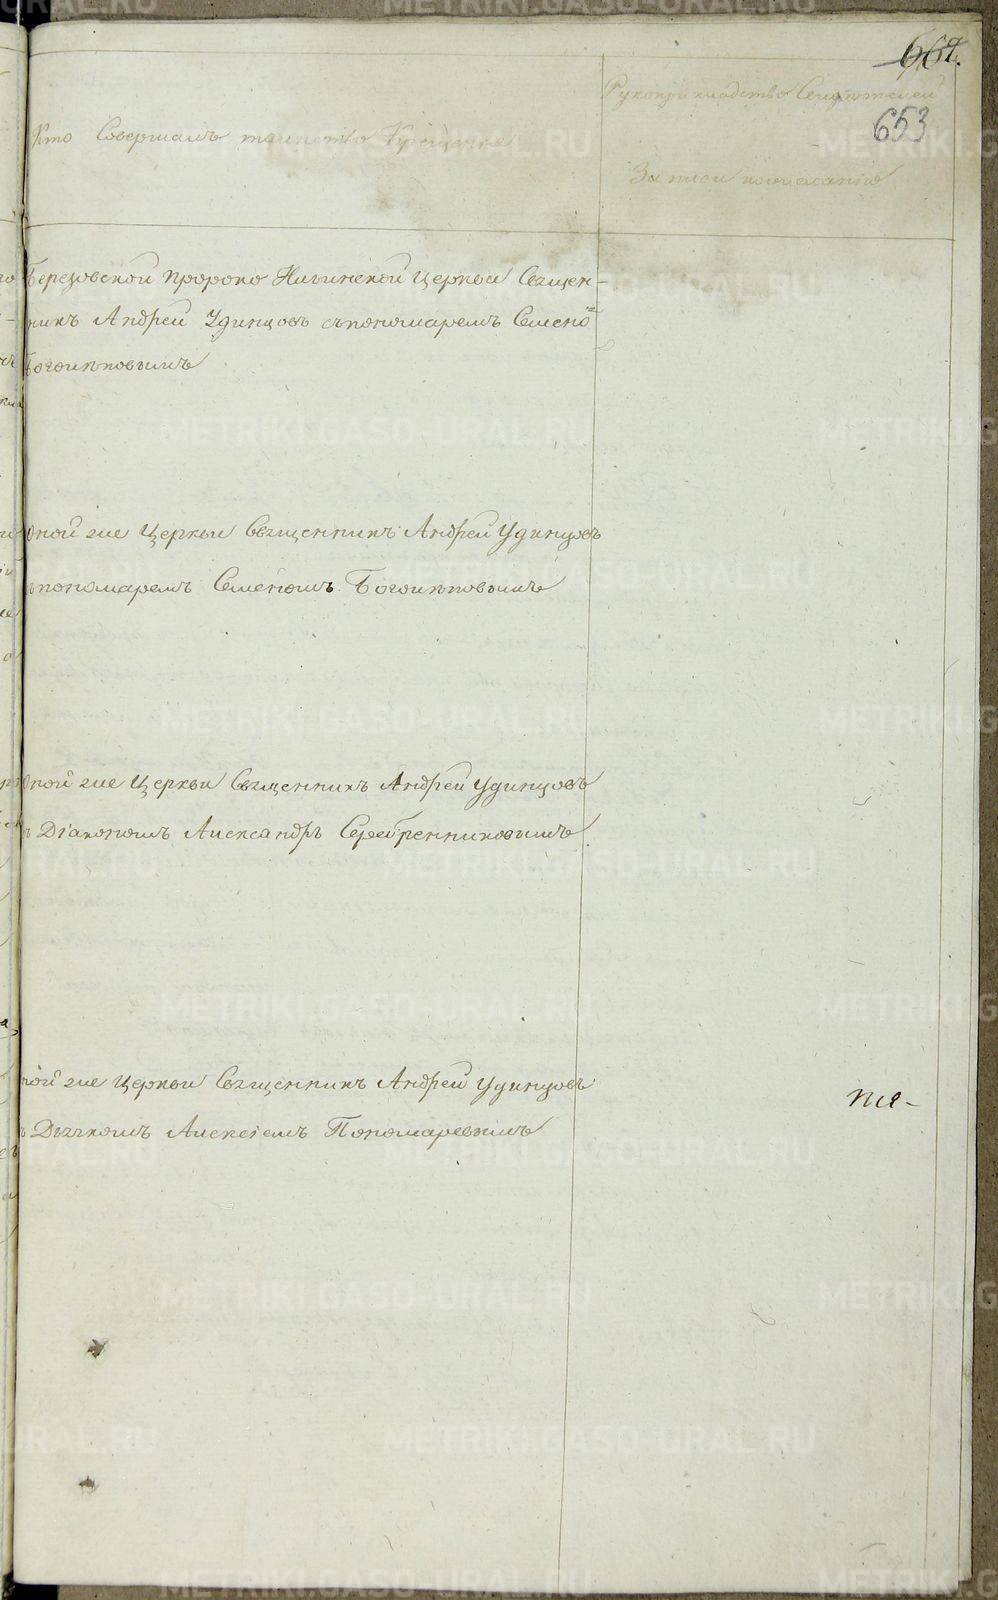 662.
653
Кто Совершалъ таинство Крещенія
Рукоприкладство Свидѣтелей
Записи пожеланію
Березовской Пророко Ильинской Церкви Священ-
никъ Андрей Удинцовъ съпономаремъ Семено
Богомоловымъ
Оной же Церкви Священникъ Андрей Удинцовъ
съпономаремъ Семеномъ
Оной же Церкви Священникъ Андрей Удинцовъ
съ Діакономъ Александръ Серебренниковымъ
Оной же Церкви Священникъ Андрей Удинцовъ
съ Дьячкомъ Алексіемъ Пономаревымъ
METRIKI.GASO-URAL.RU